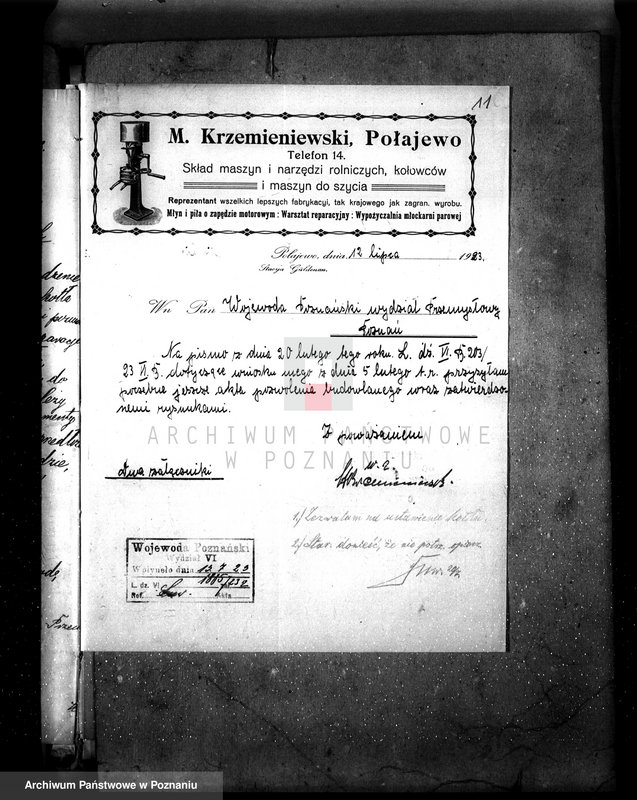 11
M. Krzemieniewski, Połajewo
Telefon 14.
Skład maszyn i narzędzi rolniczych, kołowców
i maszyn do szycia
Reprezentant wszelkich lepszych fabrykacyi, tak krajowego jak zagran. wyrobu.
Młyn i piła o zapędzie motorowym : Warsztat reparacyjny : Wypożyczalnia młockarni parowej
Połajewo, dnia 12 lipca 1923.
Stacyja Güldenau.
Wn Pan Wojewoda Poznański wydział Przemysłowy
Poznań
Na pismo z dnia 20 lutego tego roku L. dź. VI. P. 203/
23 VI P. dotyczące wniosku mego z dnia 5 lutego t.r. przysyłam
jeszcze akta pozwolenia budowlanego wraz zatwierdzo-
nemi rysunkami.
Z poważaniem
Dwa załączniki
w. z.
Krzemieniewsk.
1) Zezwalam na ustawienie kotła
2) Star. donieść, że nie potrz.
Wojewoda Poznański
Wydział VI
Wpłynęło dnia 13.7.23
L. dz. VI 1815/232
Ref. akta
ARCHIWUM PAŃSTWOWE
W POZNANIU
Archiwum Państwowe w Poznaniu